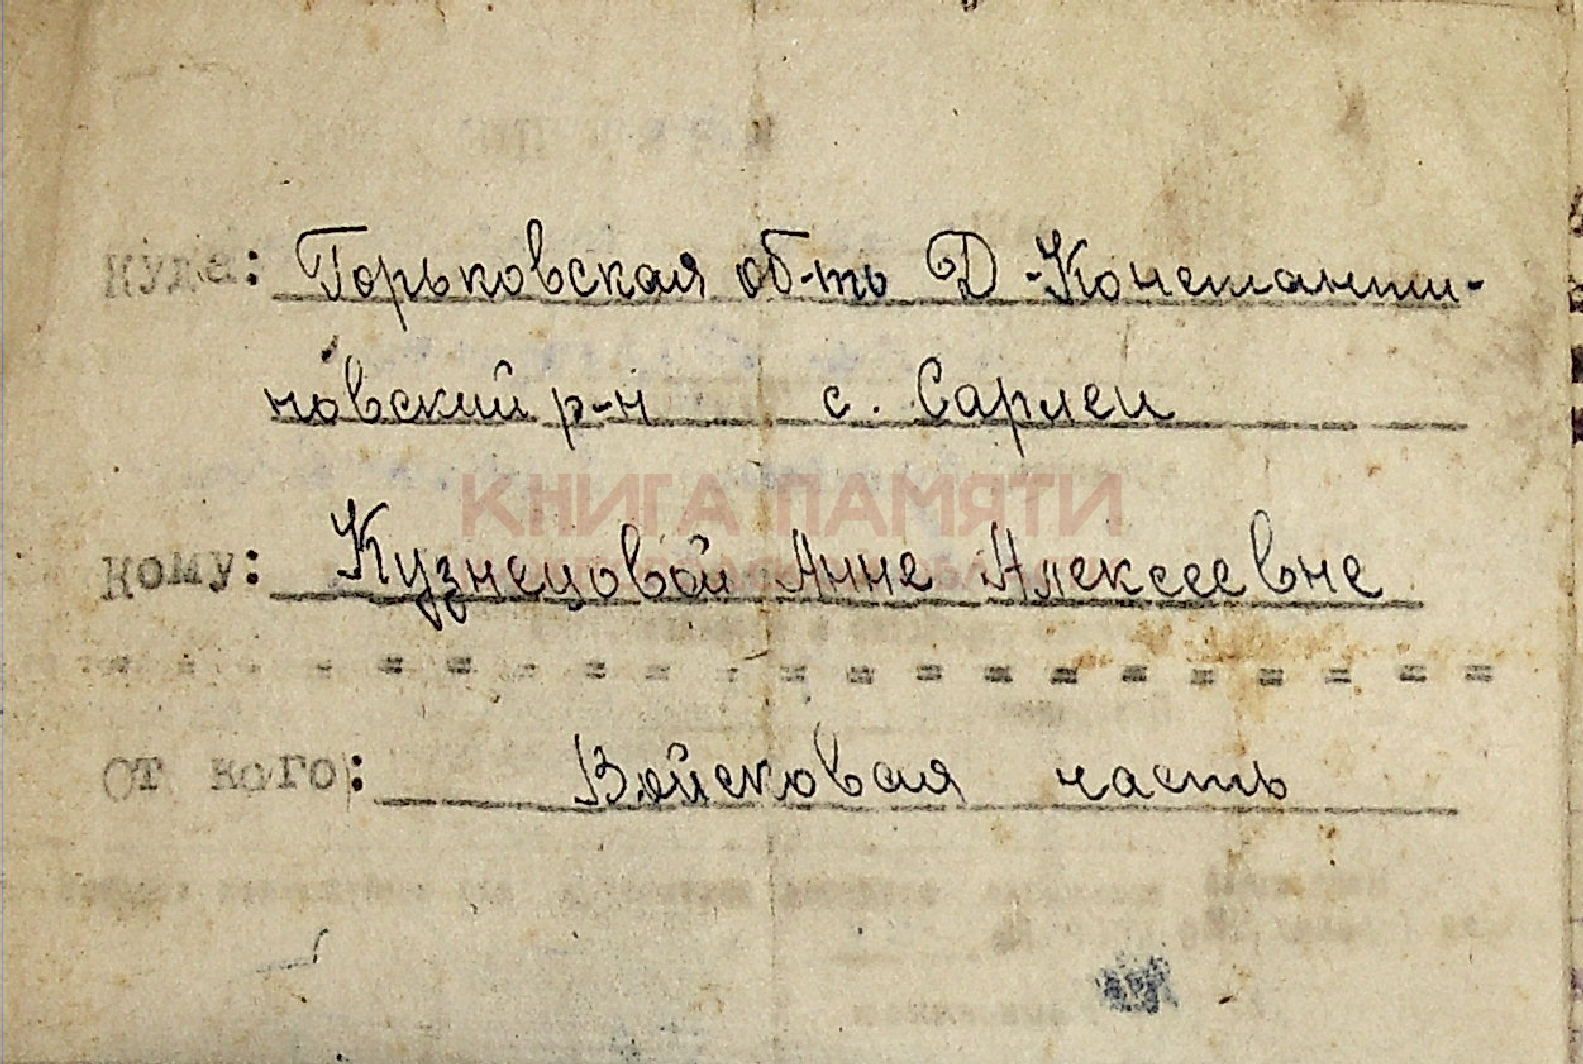 Куда: Горьковская об-ть Д-Константи-
новский р-н с. Сарлеи
КНИГА ПАМЯТИ
Кому: Кузнецовой Анне Алексеевне
От кого: Войсковая часть